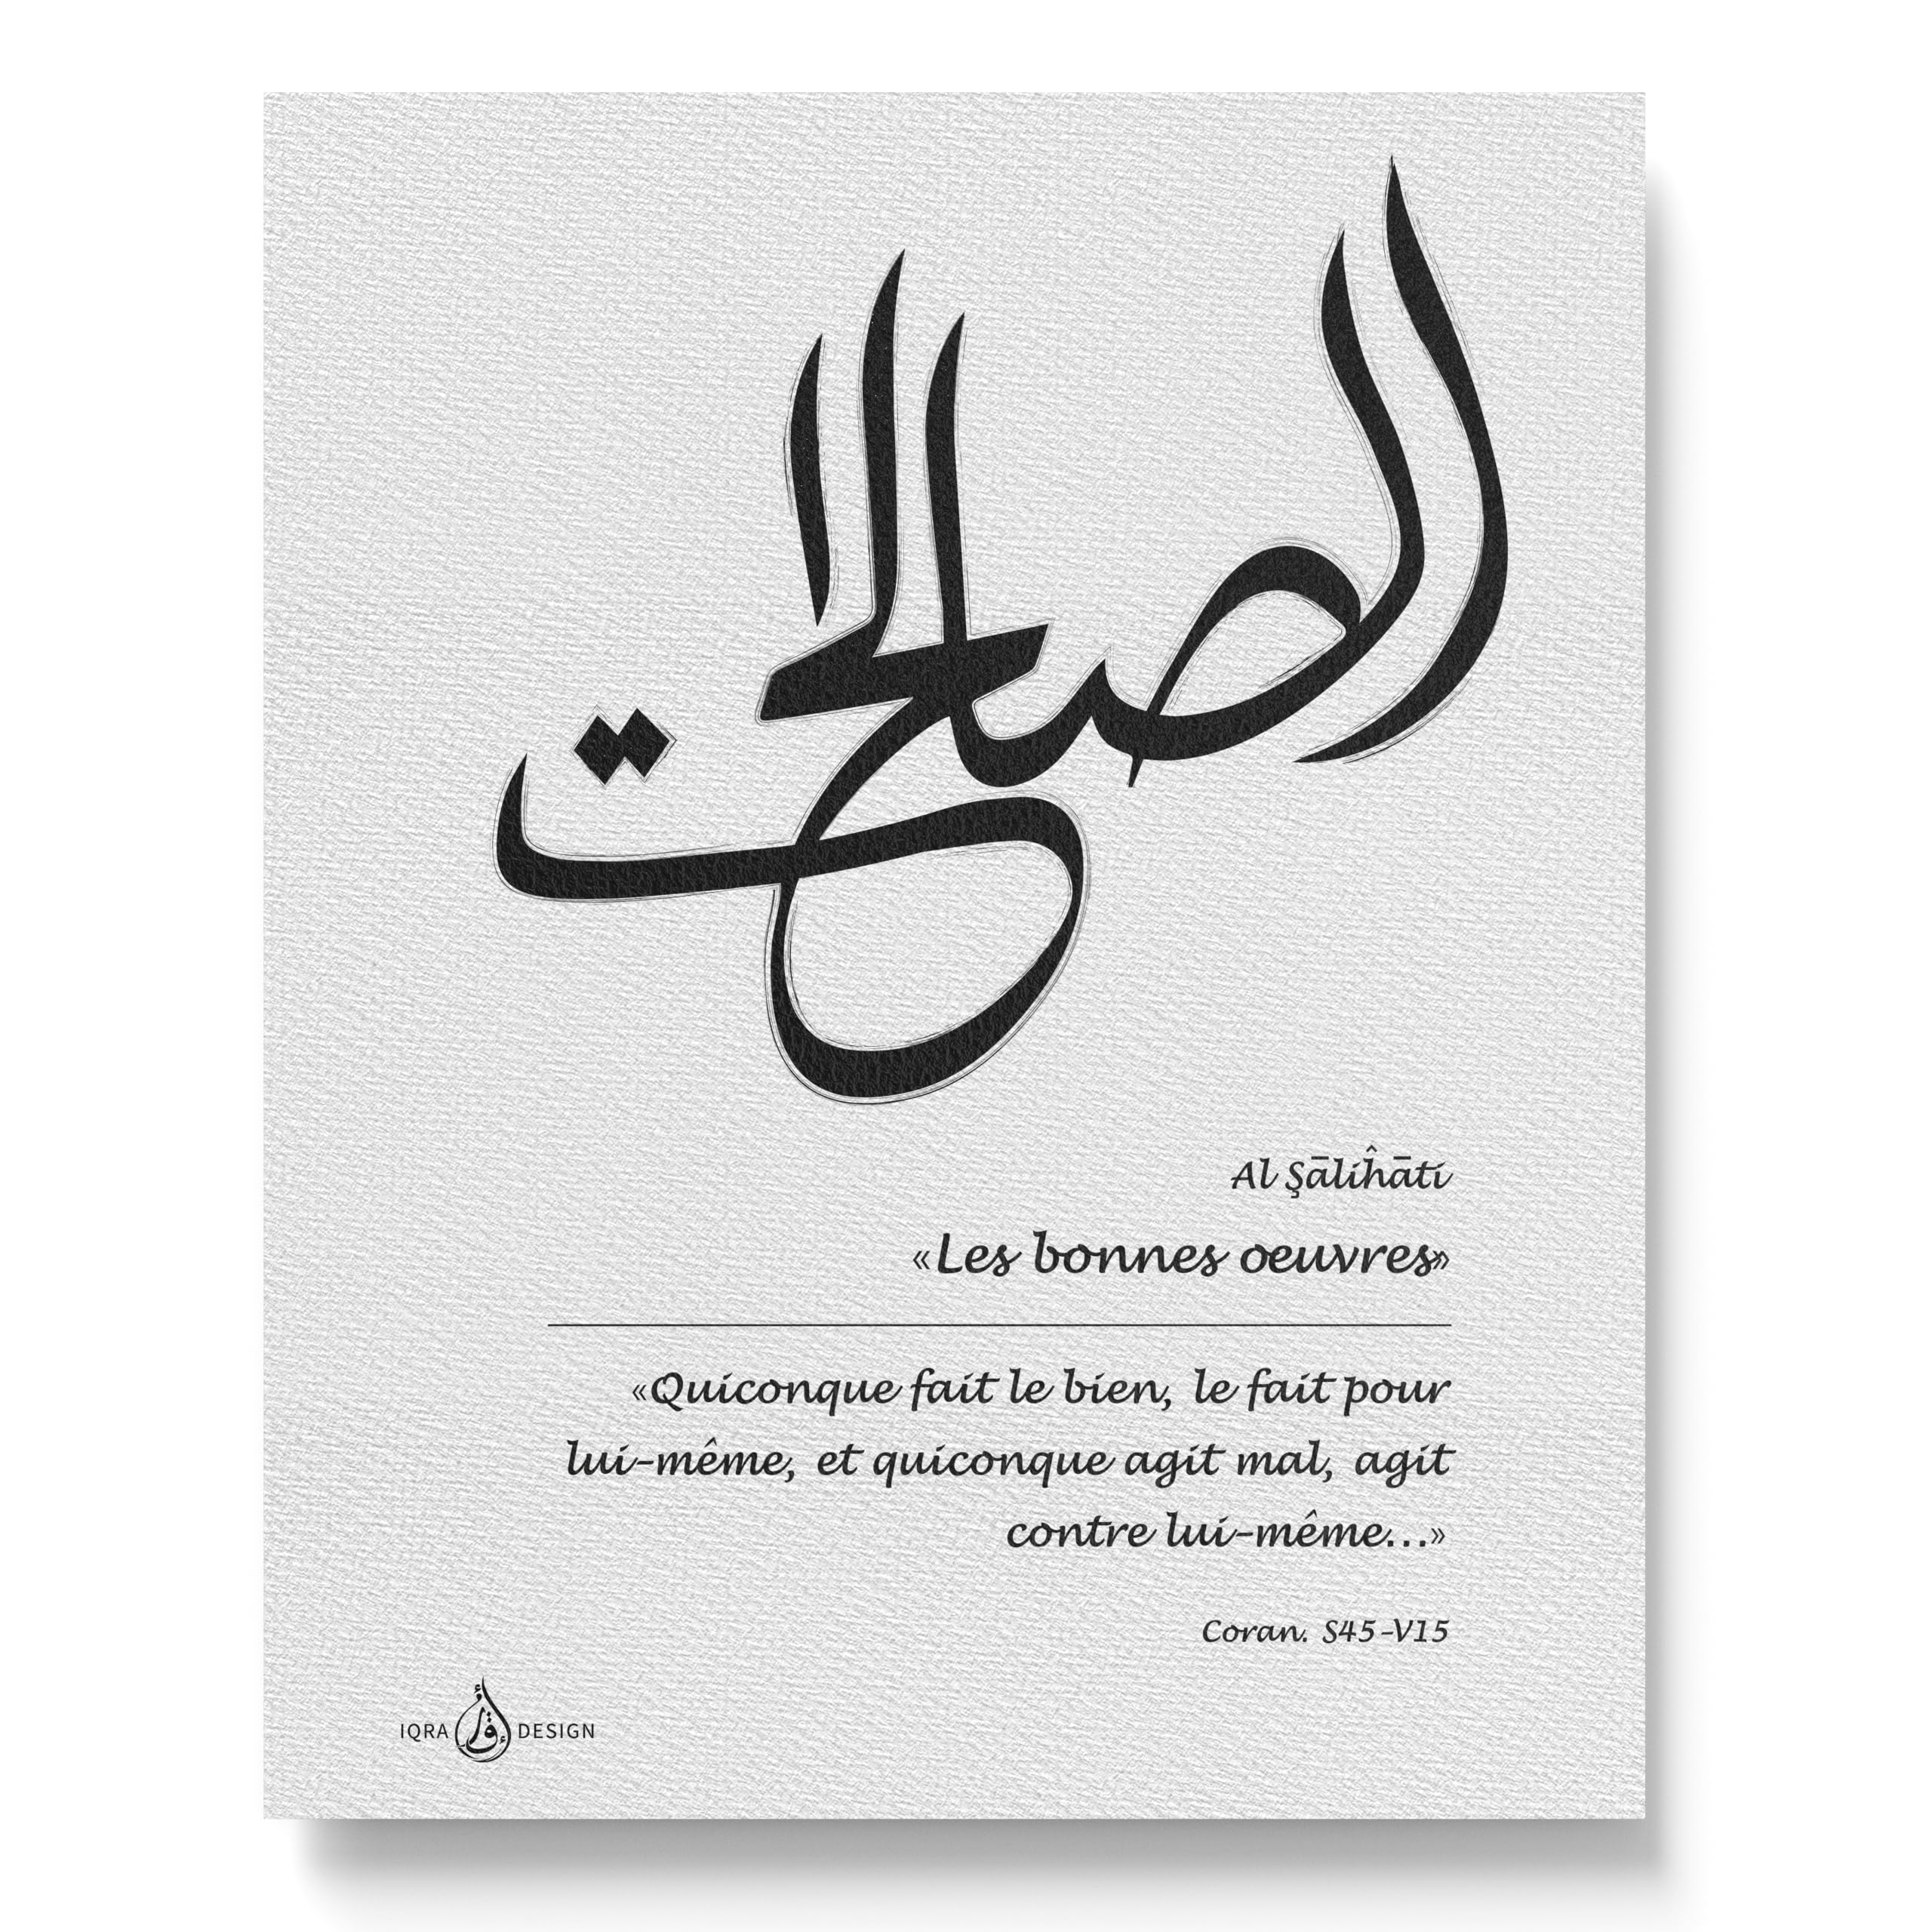 الصالحات
Al Şāliĥāti
«Les bonnes oeuvres»
«Quiconque fait le bien, le fait pour
lui-même, et quiconque agit mal, agit
contre lui-même...»
Coran. S45-V15
IQRA إقرأ DESIGN